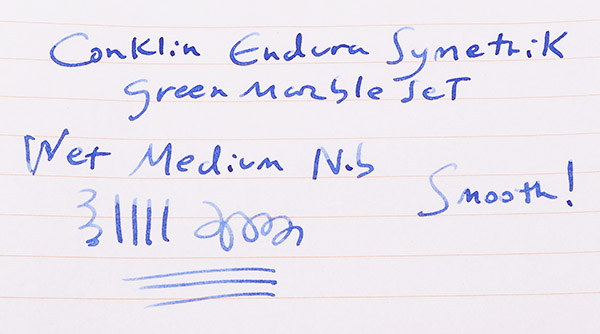 Conklin Endura Symetrik
Green Marble Set
Wet Medium Nib
Smooth!